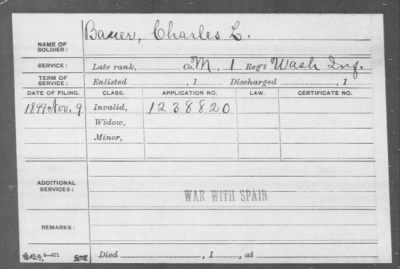 NAME OF SOLDIER: Bauer, Charles L.
SERVICE: Late rank, Co. M, 1 Reg't Wash Inf.
TERM OF SERVICE: Enlisted , 1 Discharged , 1
DATE OF FILING. CLASS. APPLICATION NO. LAW. CERTIFICATE NO.
1899 Nov. 9 Invalid, 1238820
Widow,
Minor,
ADDITIONAL SERVICES:
WAR WITH SPAIN
REMARKS:
Died , 1 , at